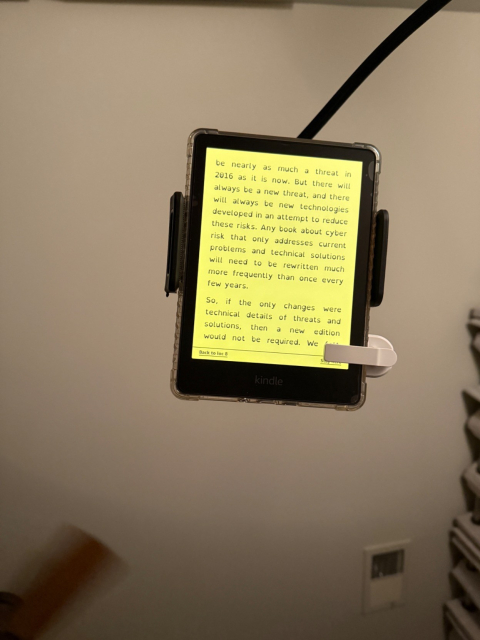 be nearly as much a threat in
2016 as it is now. But there will
always be a new threat, and there
will always be new technologies
developed in an attempt to reduce
these risks. Any book about cyber
risk that only addresses current
problems and technical solutions
will need to be rewritten much
more frequently than once every
few years.
So, if the only changes were
technical details of threats and
solutions, then a new edition
would not be required. We
Back to
kindle